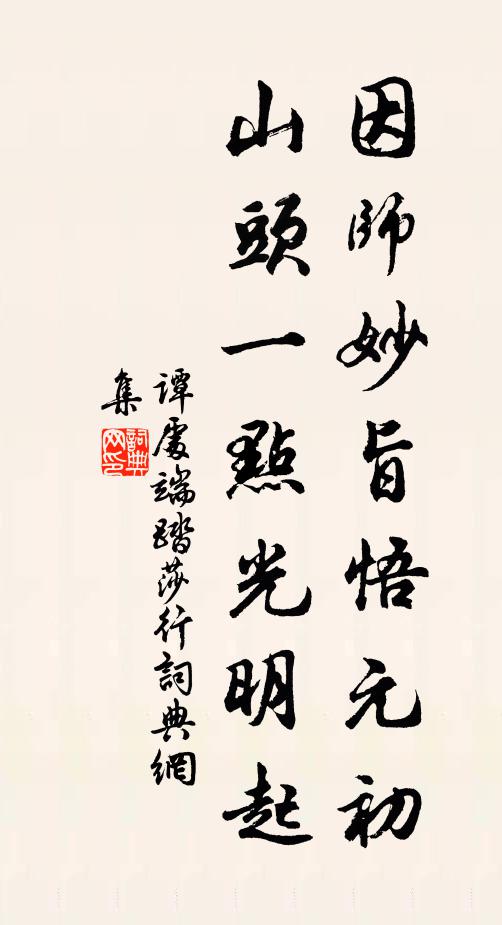 因師妙旨悟元初
山頭一點光明起
譚處端踏莎行詞典網
集
詞典
网印